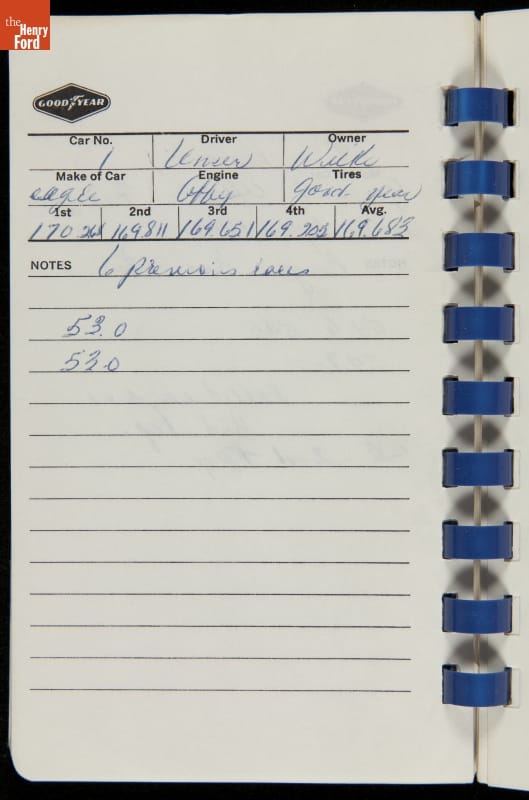 the Henry Ford
GOOD YEAR
Car No. Driver Owner
1 Unser Wilke
Make of Car Engine Tires
eagle Offy Good year
1st 2nd 3rd 4th Avg.
170.261 169.811 169.651 169.205 169.683
NOTES 6 previous races
53.0
53.0